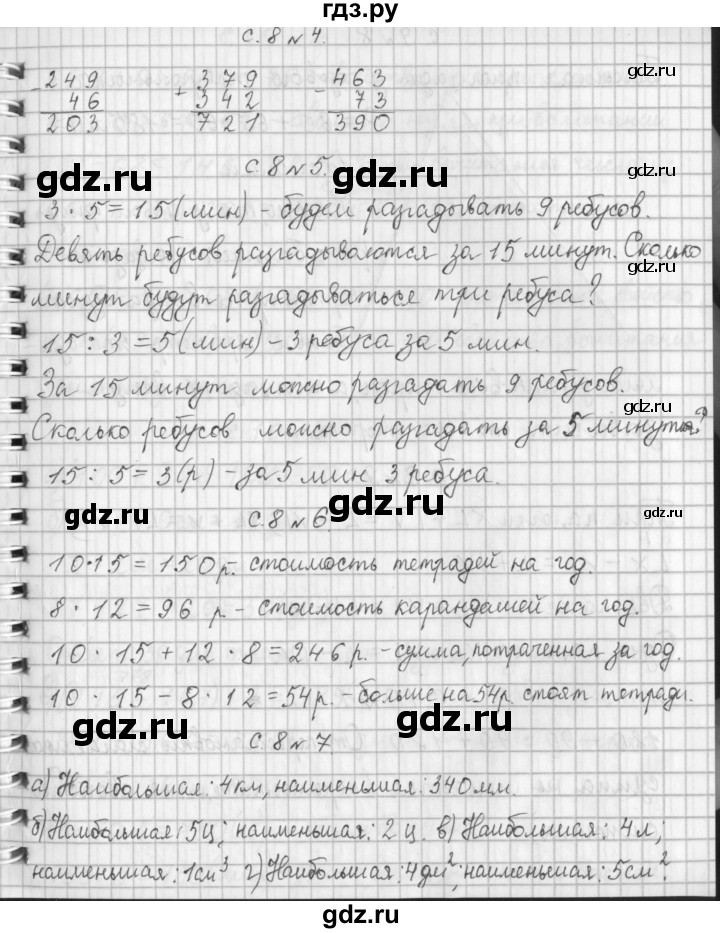 гдз.ру
с. 8 № 4.
249 379 463
- 46 + 342 - 73
203 721 390
gdz.ru
gdz.ru
с. 8 № 5.
gdz.ru gdz.ru
3 · 5 = 15 (мин) - будем разгадывать 9 ребусов.
Девять ребусов разгадываются за 15 минут. Сколько
минут будут разгадываться три ребуса?
gdz.ru gdz.ru
15 : 3 = 5 (мин) - 3 ребуса за 5 мин.
За 15 минут можно разгадать 9 ребусов.
gdz.ru
Сколько ребусов можно разгадать за 5 минут?
15 : 5 = 3 (р) - за 5 мин 3 ребуса.
gdz.ru gdz.ru
gdz.ru
с. 8 № 6.
10 · 15 = 150 р. стоимость тетрадей на год.
8 · 12 = 96 р - стоимость карандашей на год.
gdz.ru gdz.ru
10 · 15 + 12 · 8 = 246 р. - сумма, потраченная за год.
10 · 15 - 8 · 12 = 54 р. - больше на 54 р. стоят тетради.
gdz.ru gdz.ru
с. 8 № 7
а) Наибольшая: 4 км, наименьшая: 340 мм.
б) Наибольшая: 5 ц; наименьшая: 2 ц. в) Наибольшая: 4 л;
gdz.ru gdz.ru
наименьшая: 1 см³ г) Наибольшая: 4 дм²; наименьшая: 5 см².
gdz.ru